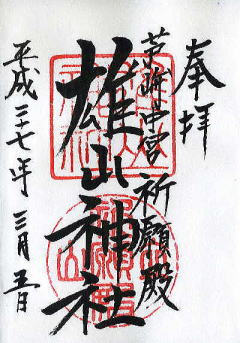 奉拝
芦峅中宮
祈願殿
雄山神社
平成二十七年三月五日